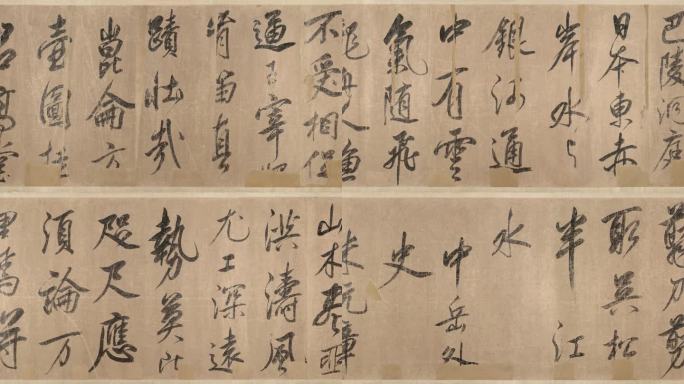 巴陵洞庭
日本東赤
岸水与
銀河通
中有雲
氣随飛
龍舟人魚
不受相促
逼王宰始
肯留真
蹟壮哉
崑崙方
壺圖挂
君高堂
剪刀剪
取吴松
半江
水
中岳外
史
山木
洪濤風
尤工深遠
勢莫比
咫尺應
須論万
里焉得